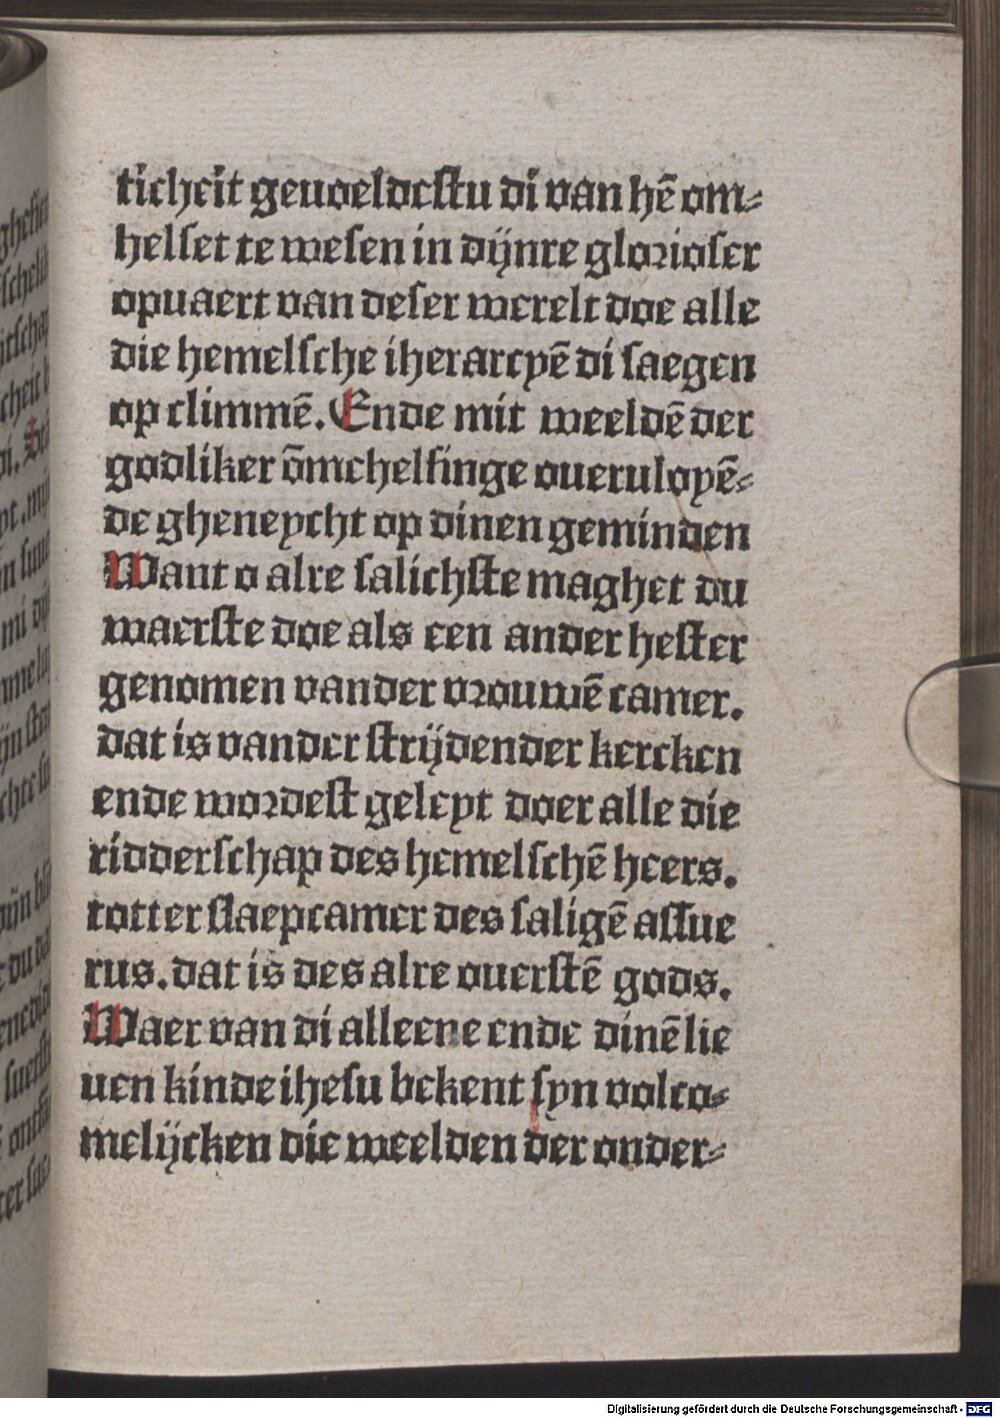 ticheit geuoeldestu di van hē om⸗
helset te wesen in dijnre glorioser
opuaert van deser werelt doe alle
die hemelsche iherarcyē di saegen
op climmē. Ende mit weeldē der
godliker ōmchelsinge oueruloyē⸗
de gheneycht op dinen geminden
Want o alre salichste maghet du
waerste doe als een ander hester
genomen vander vrouwē camer.
dat is vander strijdender kercken
ende wordest geleyt doer alle die
ridderschap des hemelschē heers.
totter slaepcamer des saligē assue
rus. dat is des alre ouerstē gods.
Waer van di alleene ende dinē lie
uen kinde ihesu bekent syn volco⸗
melijcken die weelden der onder⸗
Digitalisierung gefördert durch die Deutsche Forschungsgemeinschaft - DFG